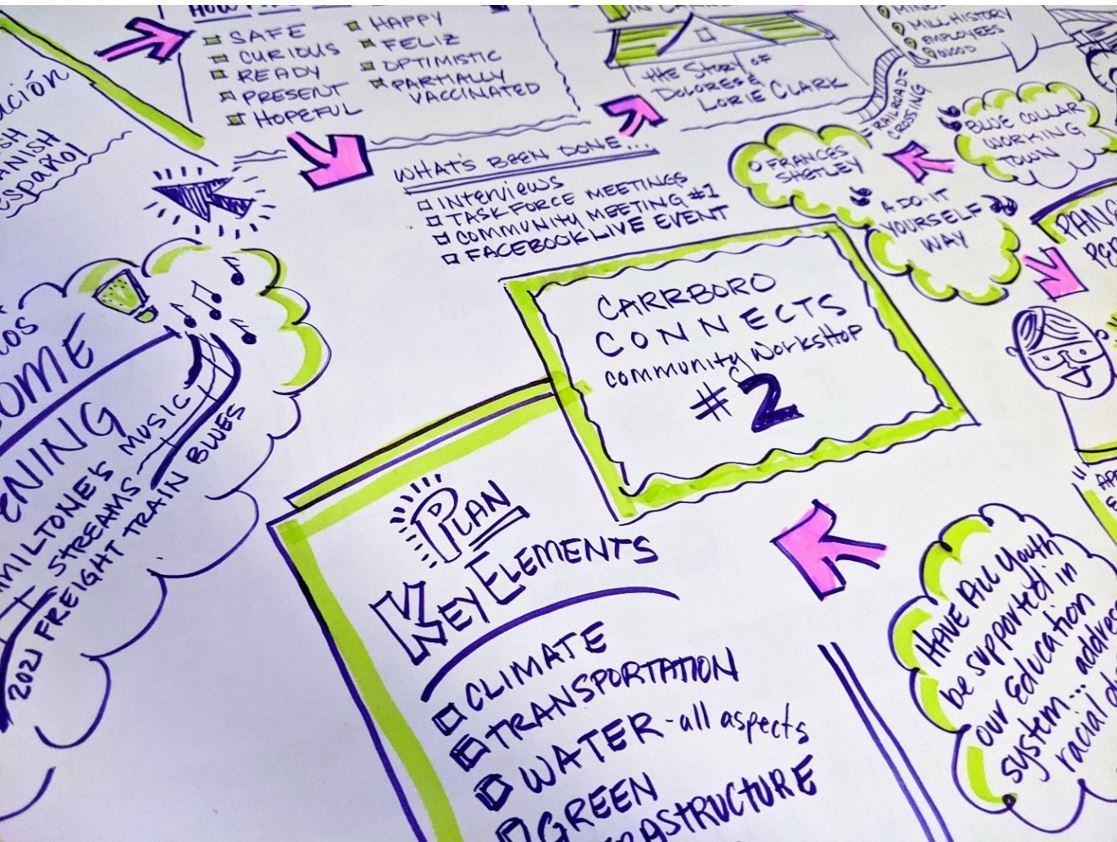 SAFE
CURIOUS
READY
PRESENT
HOPEFUL
HAPPY
FELIZ
OPTIMISTIC
PARTIALLY
VACCINATED
THE STORY OF
DOLORES &
LORIE CLARK
MILL HISTORY
EMPLOYEES
RAILROAD
CROSSING
BLUE COLLAR
WORKING
TOWN
FRANCES
SHETLEY
A DO IT
YOURSELF
WAY
español
WHAT'S BEEN DONE...
INTERVIEWS
TASKFORCE MEETINGS
COMMUNITY MEETING #1
FACEBOOK LIVE EVENT
CARRBORO
CONNECTS
COMMUNITY WORKSHOP
#2
MUSIC
STREAMS
2021 FREIGHT TRAIN BLUES
PLAN
KEY ELEMENTS
CLIMATE
TRANSPORTATION
WATER - all aspects
GREEN
HAVE ALL YOUTH
be supported in
our Education
system... address
racial